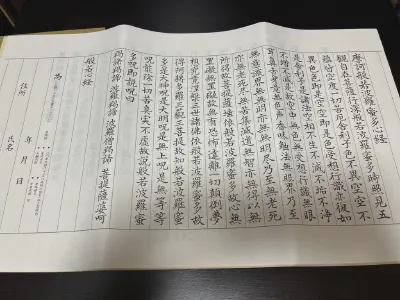 摩訶般若波羅蜜多心経
観自在菩薩行深般若波羅蜜多時照見五
蘊皆空度一切苦厄舎利子色不異空空不
異色色即是空空即是色受想行識亦復如
是舎利子是諸法空相不生不滅不垢不浄
不増不減是故空中無色無受想行識無眼
耳鼻舌身意無色声香味触法無眼界乃至
無意識界無無明亦無無明尽乃至無老死
亦無老死尽無苦集滅道無智亦無得以無
所得故菩提薩埵依般若波羅蜜多故心無
罣礙無罣礙故無有恐怖遠離一切顛倒夢
想究竟涅槃三世諸仏依般若波羅蜜多故
得阿耨多羅三藐三菩提故知般若波羅蜜
多是大神呪是大明呪是無上呪是無等等
呪能除一切苦真実不虚故説般若波羅蜜
多呪即説呪曰
羯諦羯諦 波羅羯諦 波羅僧羯諦 菩提薩婆訶
般若心経
為
年 月 日
住所
氏名